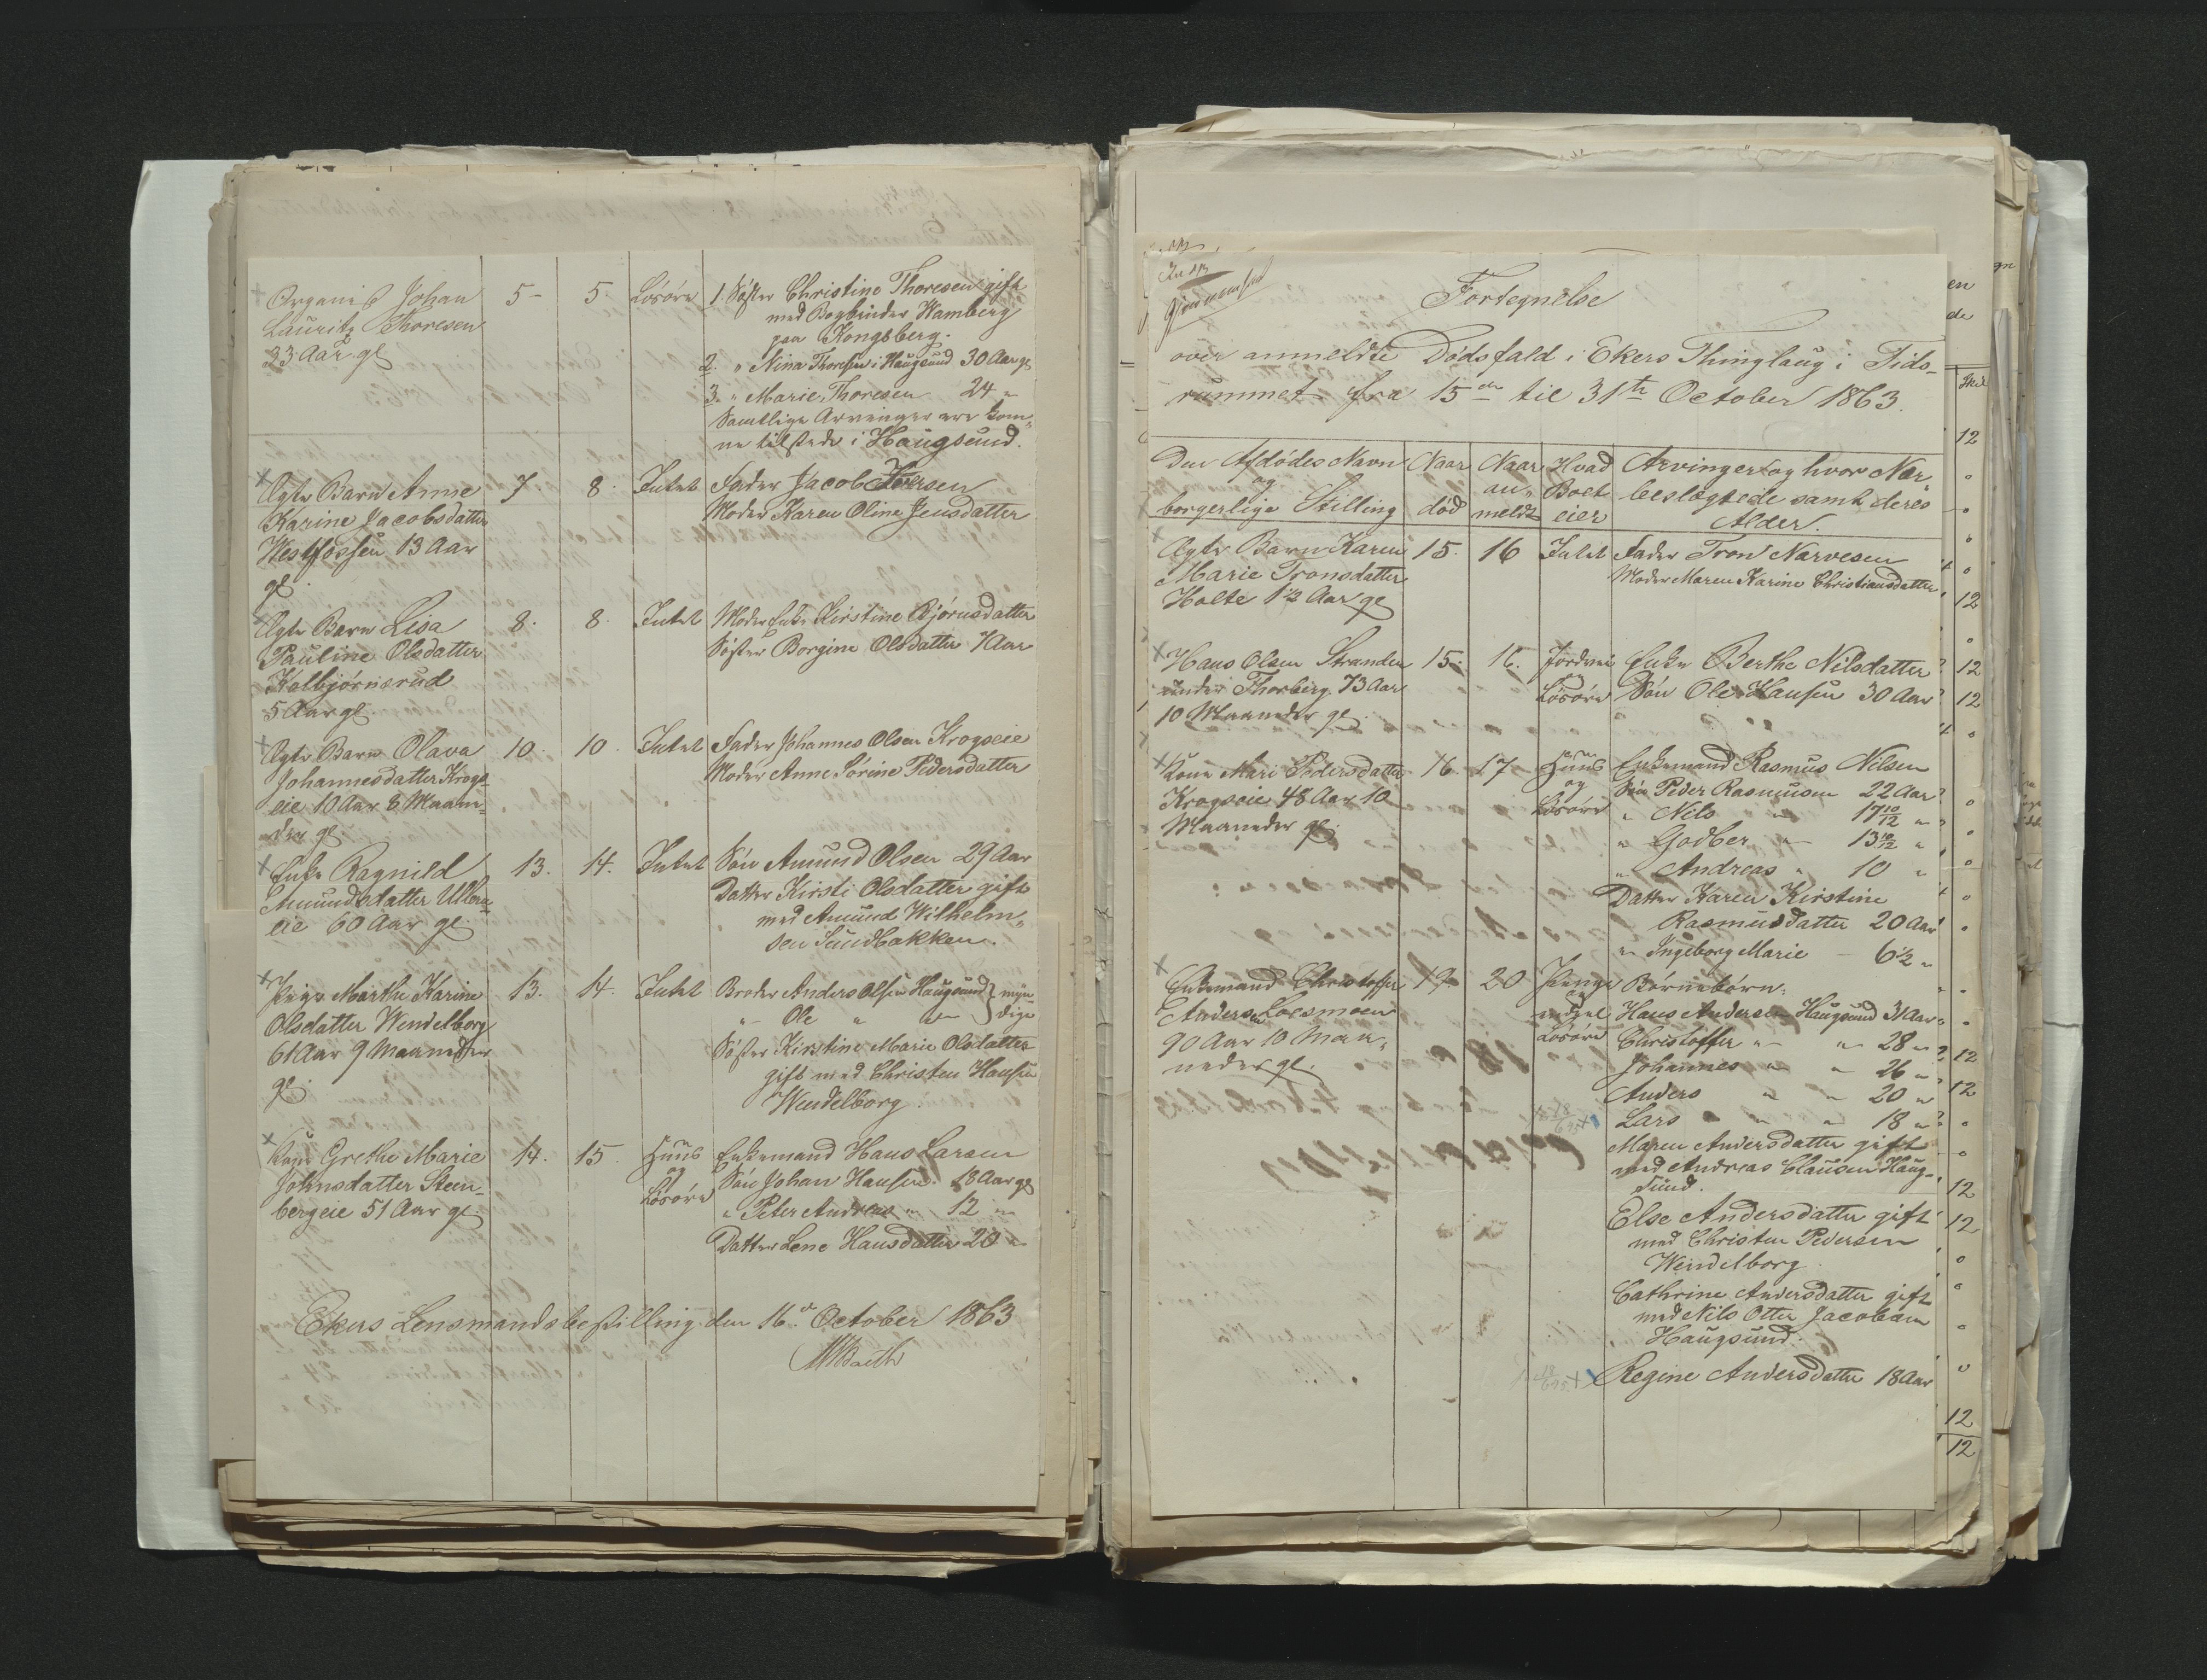 Organist Johan 5 - 5 Løsøre 1. Søster Christine Thoresen gift
Lauritz Thoresen med Bogbinder Hamberg
33 Aar gl. paa Kongsberg.
2. " Nina Thoresen i Haugsund 30 Aar gl
3. " Marie Thoresen 24 "
Samtlige Arvinger ere kom-
ne tilstede i Haugsund.
Ægte Barn Anne 7. 8. Intet Fader Jacob Iversen
Karine Jacobsdatter Moder Karen Oline Jensdatter
Westfossen 13 Aar
gl.
Ægte Barn Lisa 8. 8. Intet Moder Enke Kirstine Bjørnsdatter
Pauline Olsdatter Søster Borgine Olsdatter 7 Aar
Kalbjørnsrud
5 Aar gl.
Ægte Barn Olava 10. 10. Intet Fader Johannes Olsen Krogseie
Johannesdatter Krogs- Moder Anne Sørine Pedersdatter
eie 10 Aar 8 Maan-
der gl.
Enke Ragnild 13. 14. Intet Søn Amund Olsen 29 Aar
Amundsdatter Ulleru- Datter Kirsti Olsdatter gift
eie 60 Aar gl. med Amund Wilhelm-
sen Sundbakken.
Pige Marthe Karine 13. 14. Intet Broder Anders Olsen Haugsund } myn-
Olsdatter Wendelborg " Ole " " dige
61 Aar 9 Maaneder Søster Kirstine Marie Olsdatter
gl. gift med Christen Hansen
Wendelborg.
Kone Grethe Marie 14. 15. Huus Enkemand Hans Larsen
Johnsdatter Steen- og Søn Johan Hansen 18 Aar gl
bergeie 51 Aar gl. Løsøre " Peter Andreas " 12 "
Datter Lene Hansdatter 20 "
Ekers Lensmandsbestilling den 16de October 1863
Fortegnelse
over anmeldte Dødsfald i Ekers Thinglaug i Tids-
rummet fra 15de til 31te October 1863.
Den Afdødes Navn Naar Naar Hvad Arvinger og hvor Nær-
og an- Boet beslægtede samt deres
borgerlige Stilling død meldt eier Alder.
Ægte Barn Karen 15. 16 Intet Fader Tron Narvesen
Marie Tronsdatter Moder Maren Karine Christiansdatter
Holte 1 1/2 Aar gl
Hans Olsen Stranden 15. 16. Jordvei Enke Berthe Nilsdatter
under Thorberg 73 Aar og Løsøre Søn Ole Hansen 30 Aar
10 Maaneder gl.
Kone Mari Pedersdatter 16. 17 Huus Enkemand Rasmus Nilsen
Krogseie 48 Aar 10 og Søn Peder Rasmusen 22 Aar
Maaneder gl. Løsøre " Nils " 17 10/12 "
" Godber " 13 10/12 "
" Andreas " 10 "
Datter Karen Kirstine
Rasmusdatter 20 Aar
" Ingeborg Marie - 6 1/2 "
Enkemand Christoffer 19 20 Penge Børnebørn:
Andersen Loesmoen Hans Andersen Haugsund 31 Aar
90 Aar 10 Maa- Løsøre Christoffer " " 28 "
neder gl. Johannes " " 26 "
Anders " " 20 "
Lars " " 18 "
Maren Andersdatter gift
med Andreas Clausen Haug-
sund.
Else Andersdatter gift
med Christen Pedersen
Wendelborg.
Cathrine Andersdatter gift
med Nils Otter Jacobsen
Haugsund.
Regine Andersdatter 18 Aar